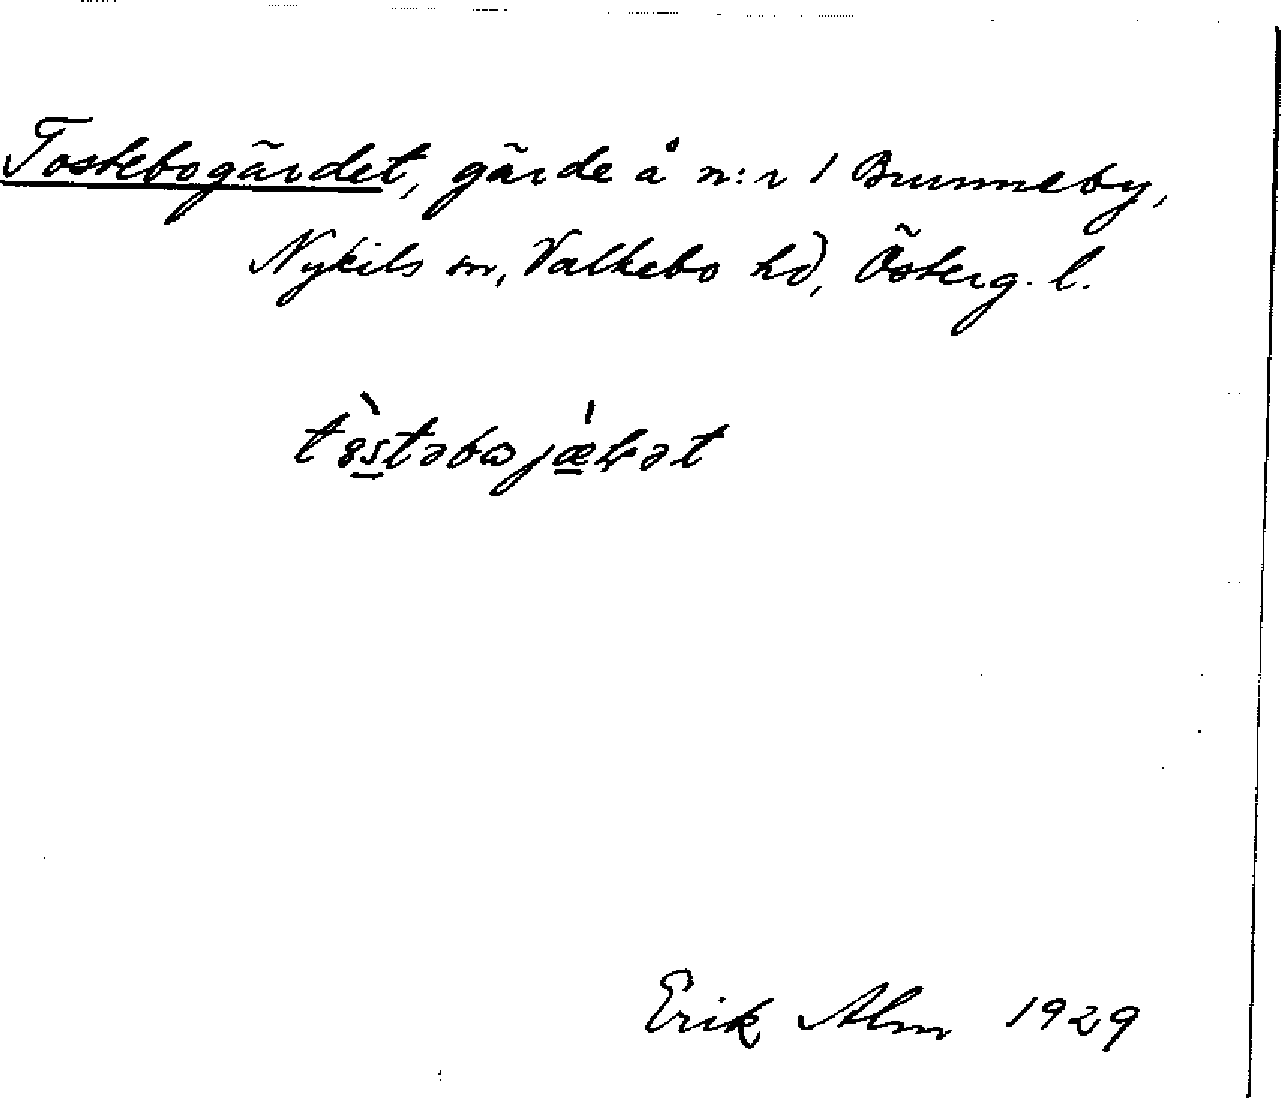 Tostebogärdet, gärde å n:r 1 Brunneby,
Nykils sn, Valkebo hd, Österg. l.
Erik Alm 1929